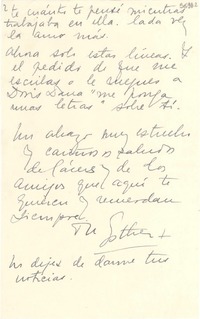 2 te cuánto te pensé mientras
trabajaba en ella. Cada vez
la amo más.
Ahora solo estas líneas. Y
el pedido de que me
escribas o le ruegues a
Doris Dana "me ponga
unas letras" sobre tí.
Un abrazo muy estrecho
y cariños saludos
de Laceres y de los
amigos que aquí te
quieren y recuerdan
siempre.
Tu Esther
No dejes de darme tus
noticias.